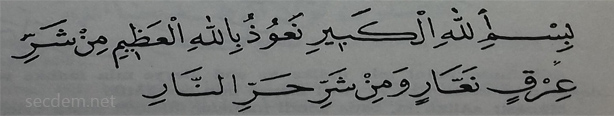 بِسْمِ اللهِ الْكَبِيرِ نَعُوذُ بِاللهِ الْعَظِيمِ مِنْ شَرِّ
عِرْقٍ نَعَّارٍ وَمِنْ شَرِّ حَرِّ النَّارِ
secdem.net